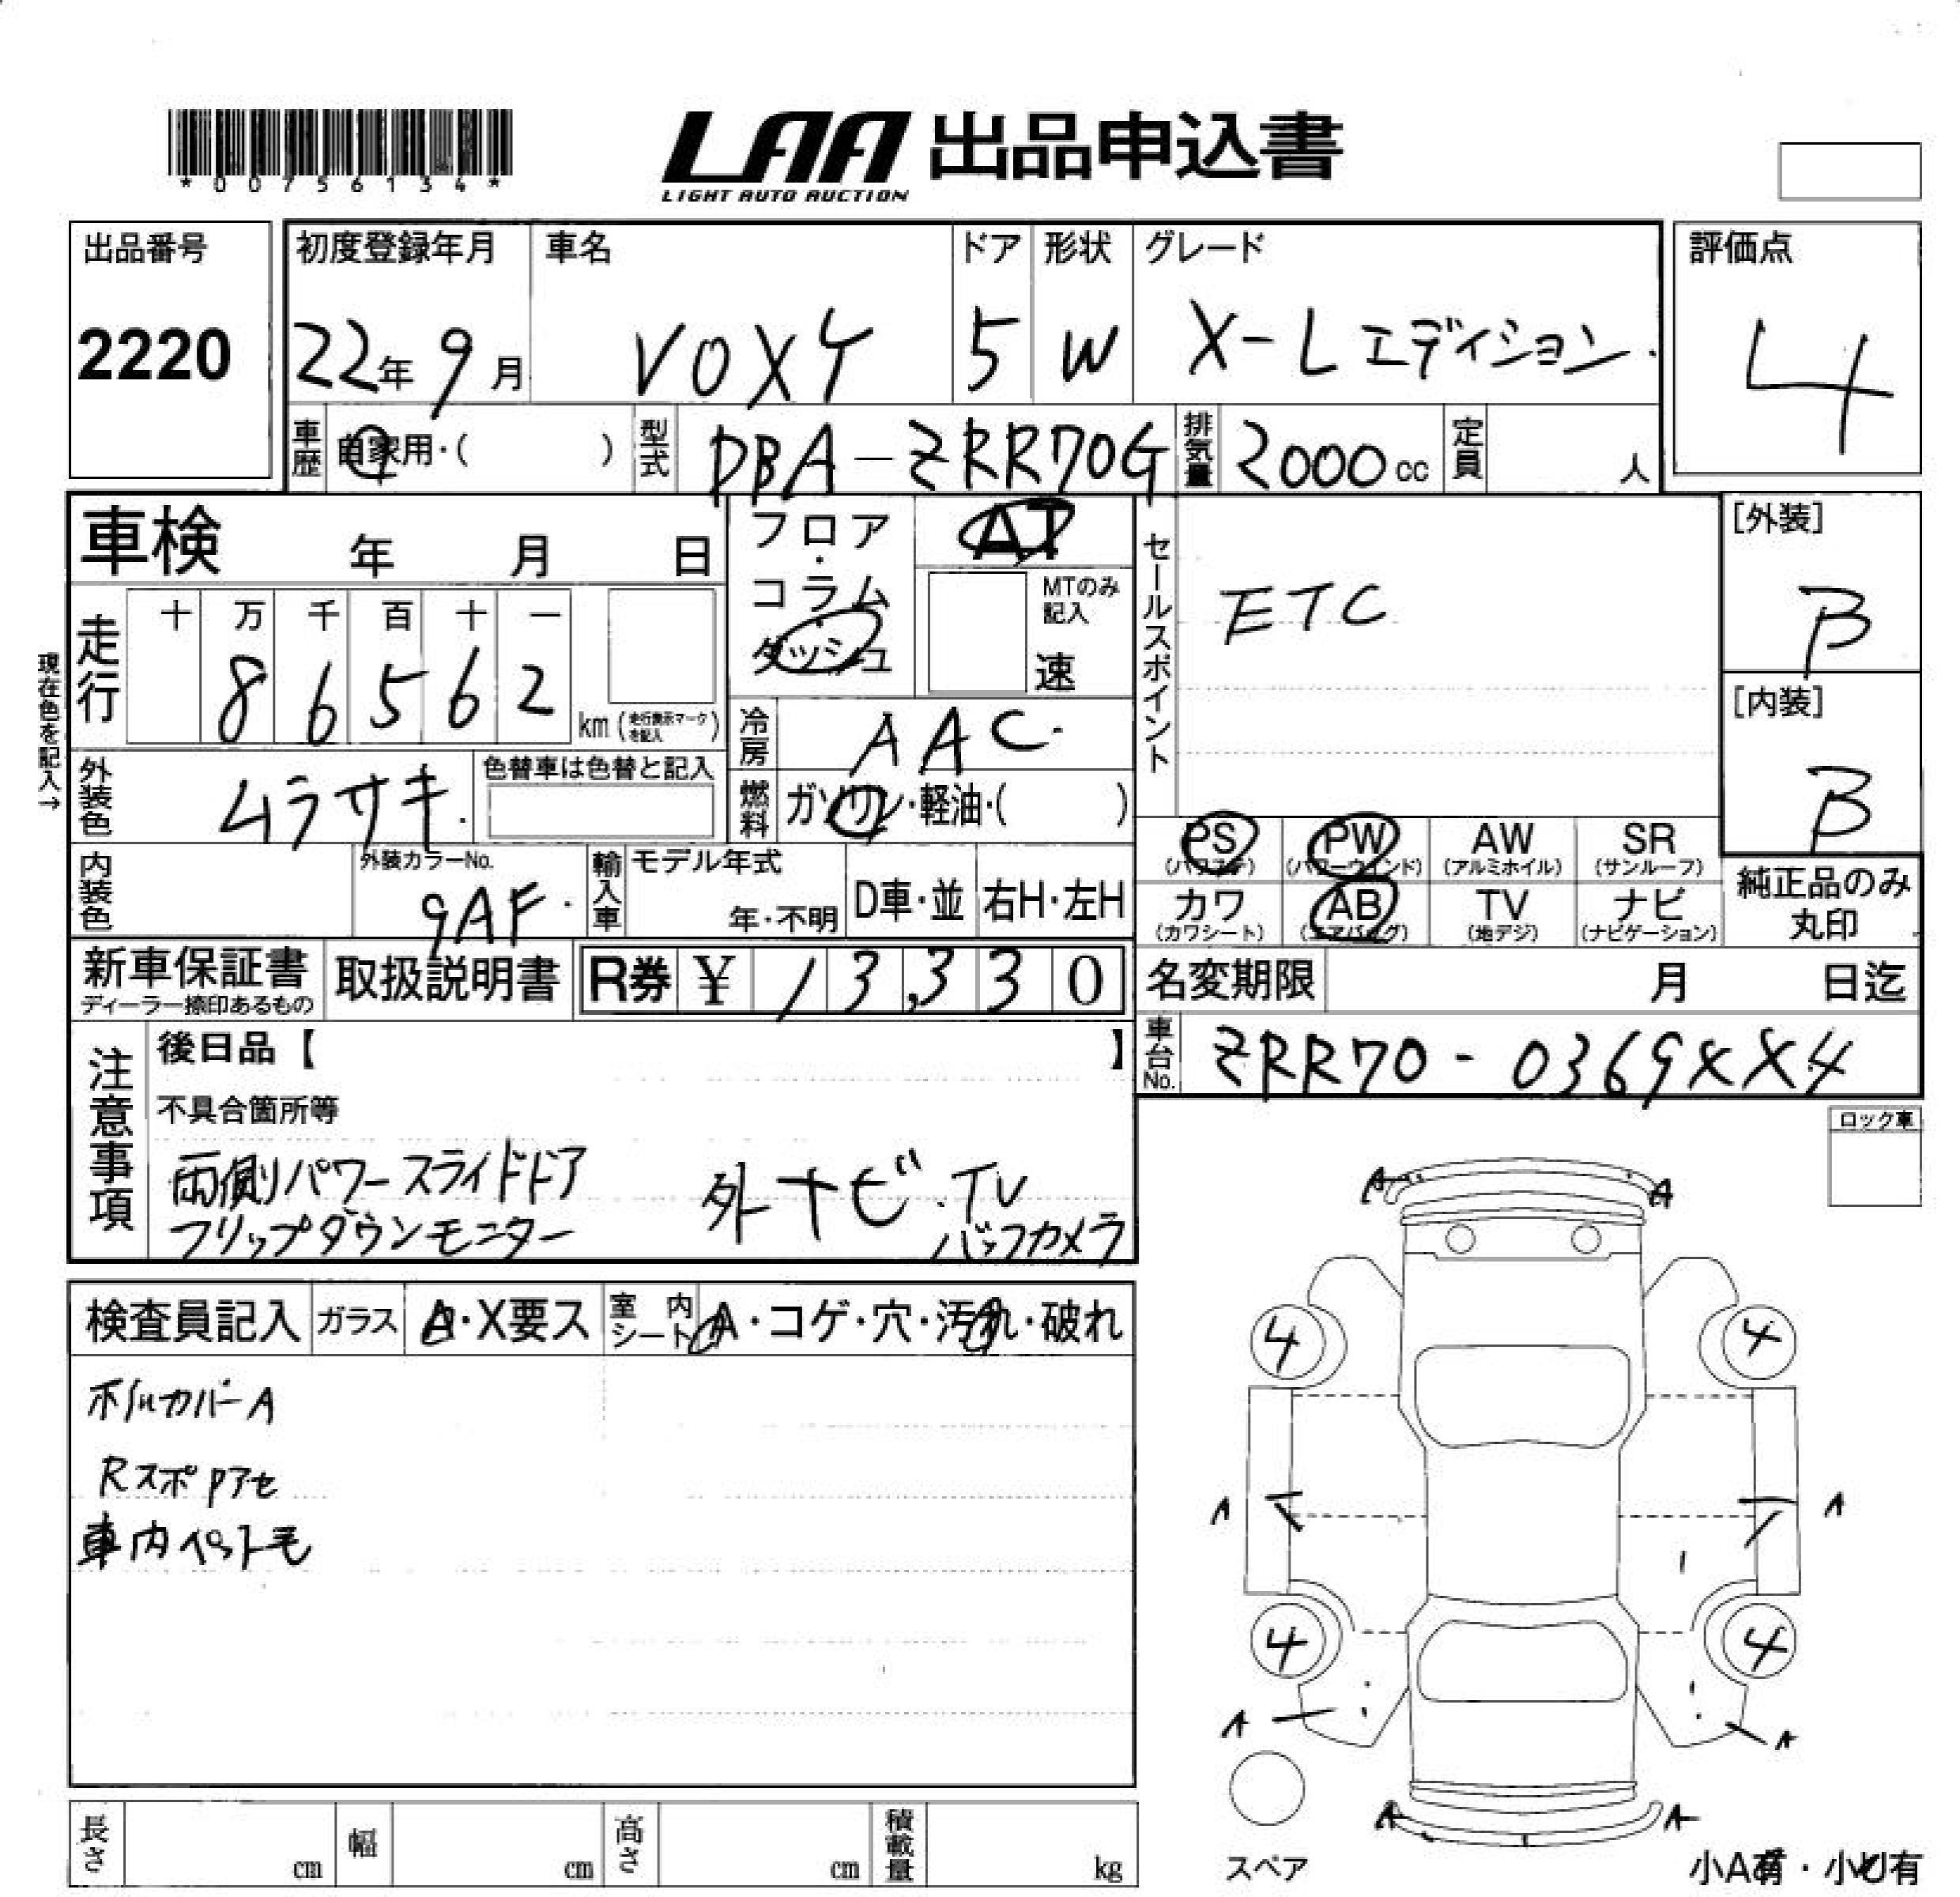 *0075６134*
LAA 出品申込書
LIGHT AUTO AUCTION
出品番号
2220
初度登録年月
22年 9月
車名
VOXY
ドア
5
形状
W
グレード
X-Lエディション.
評価点
4
車歴 自家用・( )
型式 DBA-ZRR70G
排気量 2000cc
定員 人
車検 年 月 日
フロア・コラム・ダッシュ
AT
MTのみ記入
速
セールスポイント
ETC
[外装]
B
[内装]
B
現在色を記入→
走行
十 万 千 百 十 一
8 6 5 6 2
km(走行表示マークを記入)
冷房 AAC.
外装色 ムラサキ.
色替車は色替と記入
燃料 ガソリン・軽油・( )
PS (パワステ)
PW (パワーウィンド)
AW (アルミホイル)
SR (サンルーフ)
カワ (カワシート)
AB (エアバッグ)
TV (地デジ)
ナビ (ナビゲーション)
純正品のみ
丸印
内装色
外装カラーNo.
9AF.
輸入車
モデル年式
年・不明
D車・並
右H・左H
新車保証書
ディーラー捺印あるもの
取扱説明書
R券 ¥ 13,330
名変期限 月 日迄
車台No. ZRR70-0369XX4
注意事項
後日品【 】
不具合箇所等
両側パワースライドドア
フリップダウンモニター
外ナビ.TV
バックカメラ
ロック車
検査員記入
ガラス A・X要ス
室内シート A・コゲ・穴・汚れ・破れ
ホイルカバーA
RスポPアセ
車内ペット毛
A A
4 4
A A
4 4
A A
A A
スペア
小A有・小U有
長さ cm
幅 cm
高さ cm
積載量 kg